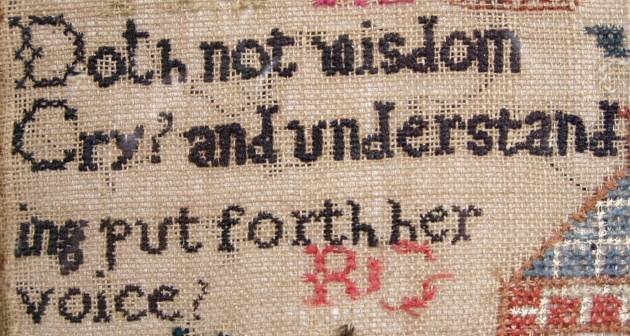 Doth not wisdom
Cry? and understand
ing put forth her
voice?